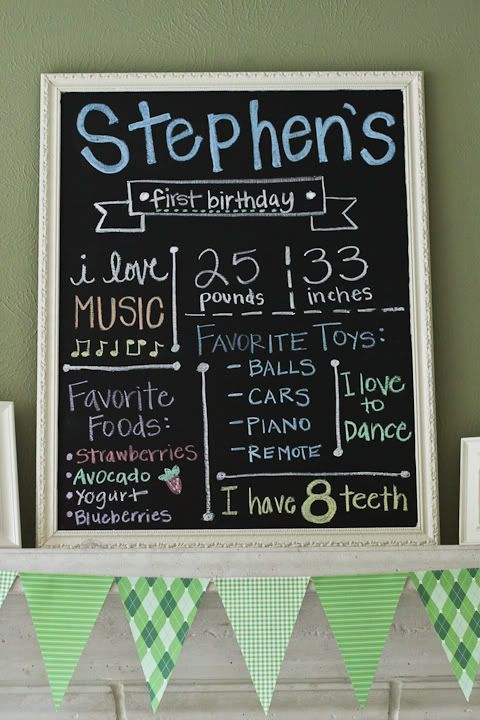 Stephen's
first birthday
i love
MUSIC
25
pounds
33
inches
FAVORITE TOYS:
- BALLS
- CARS
- PIANO
- REMOTE
I love
to
DANCE
Favorite
Foods:
• Strawberries
• Avocado
• Yogurt
• Blueberries
I have 8 teeth